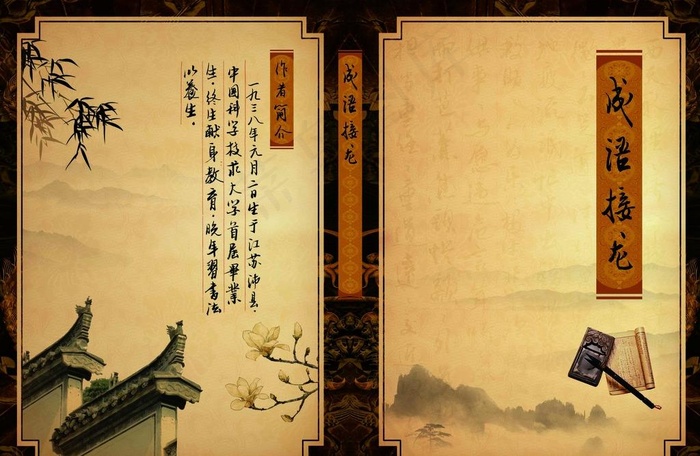 成语接龙
成语接龙
作者简介
一九三八年元月二日生于江苏沛县，
中国科学技术大学首届毕业
生，终生献身教育，晚年习书法
以养生。